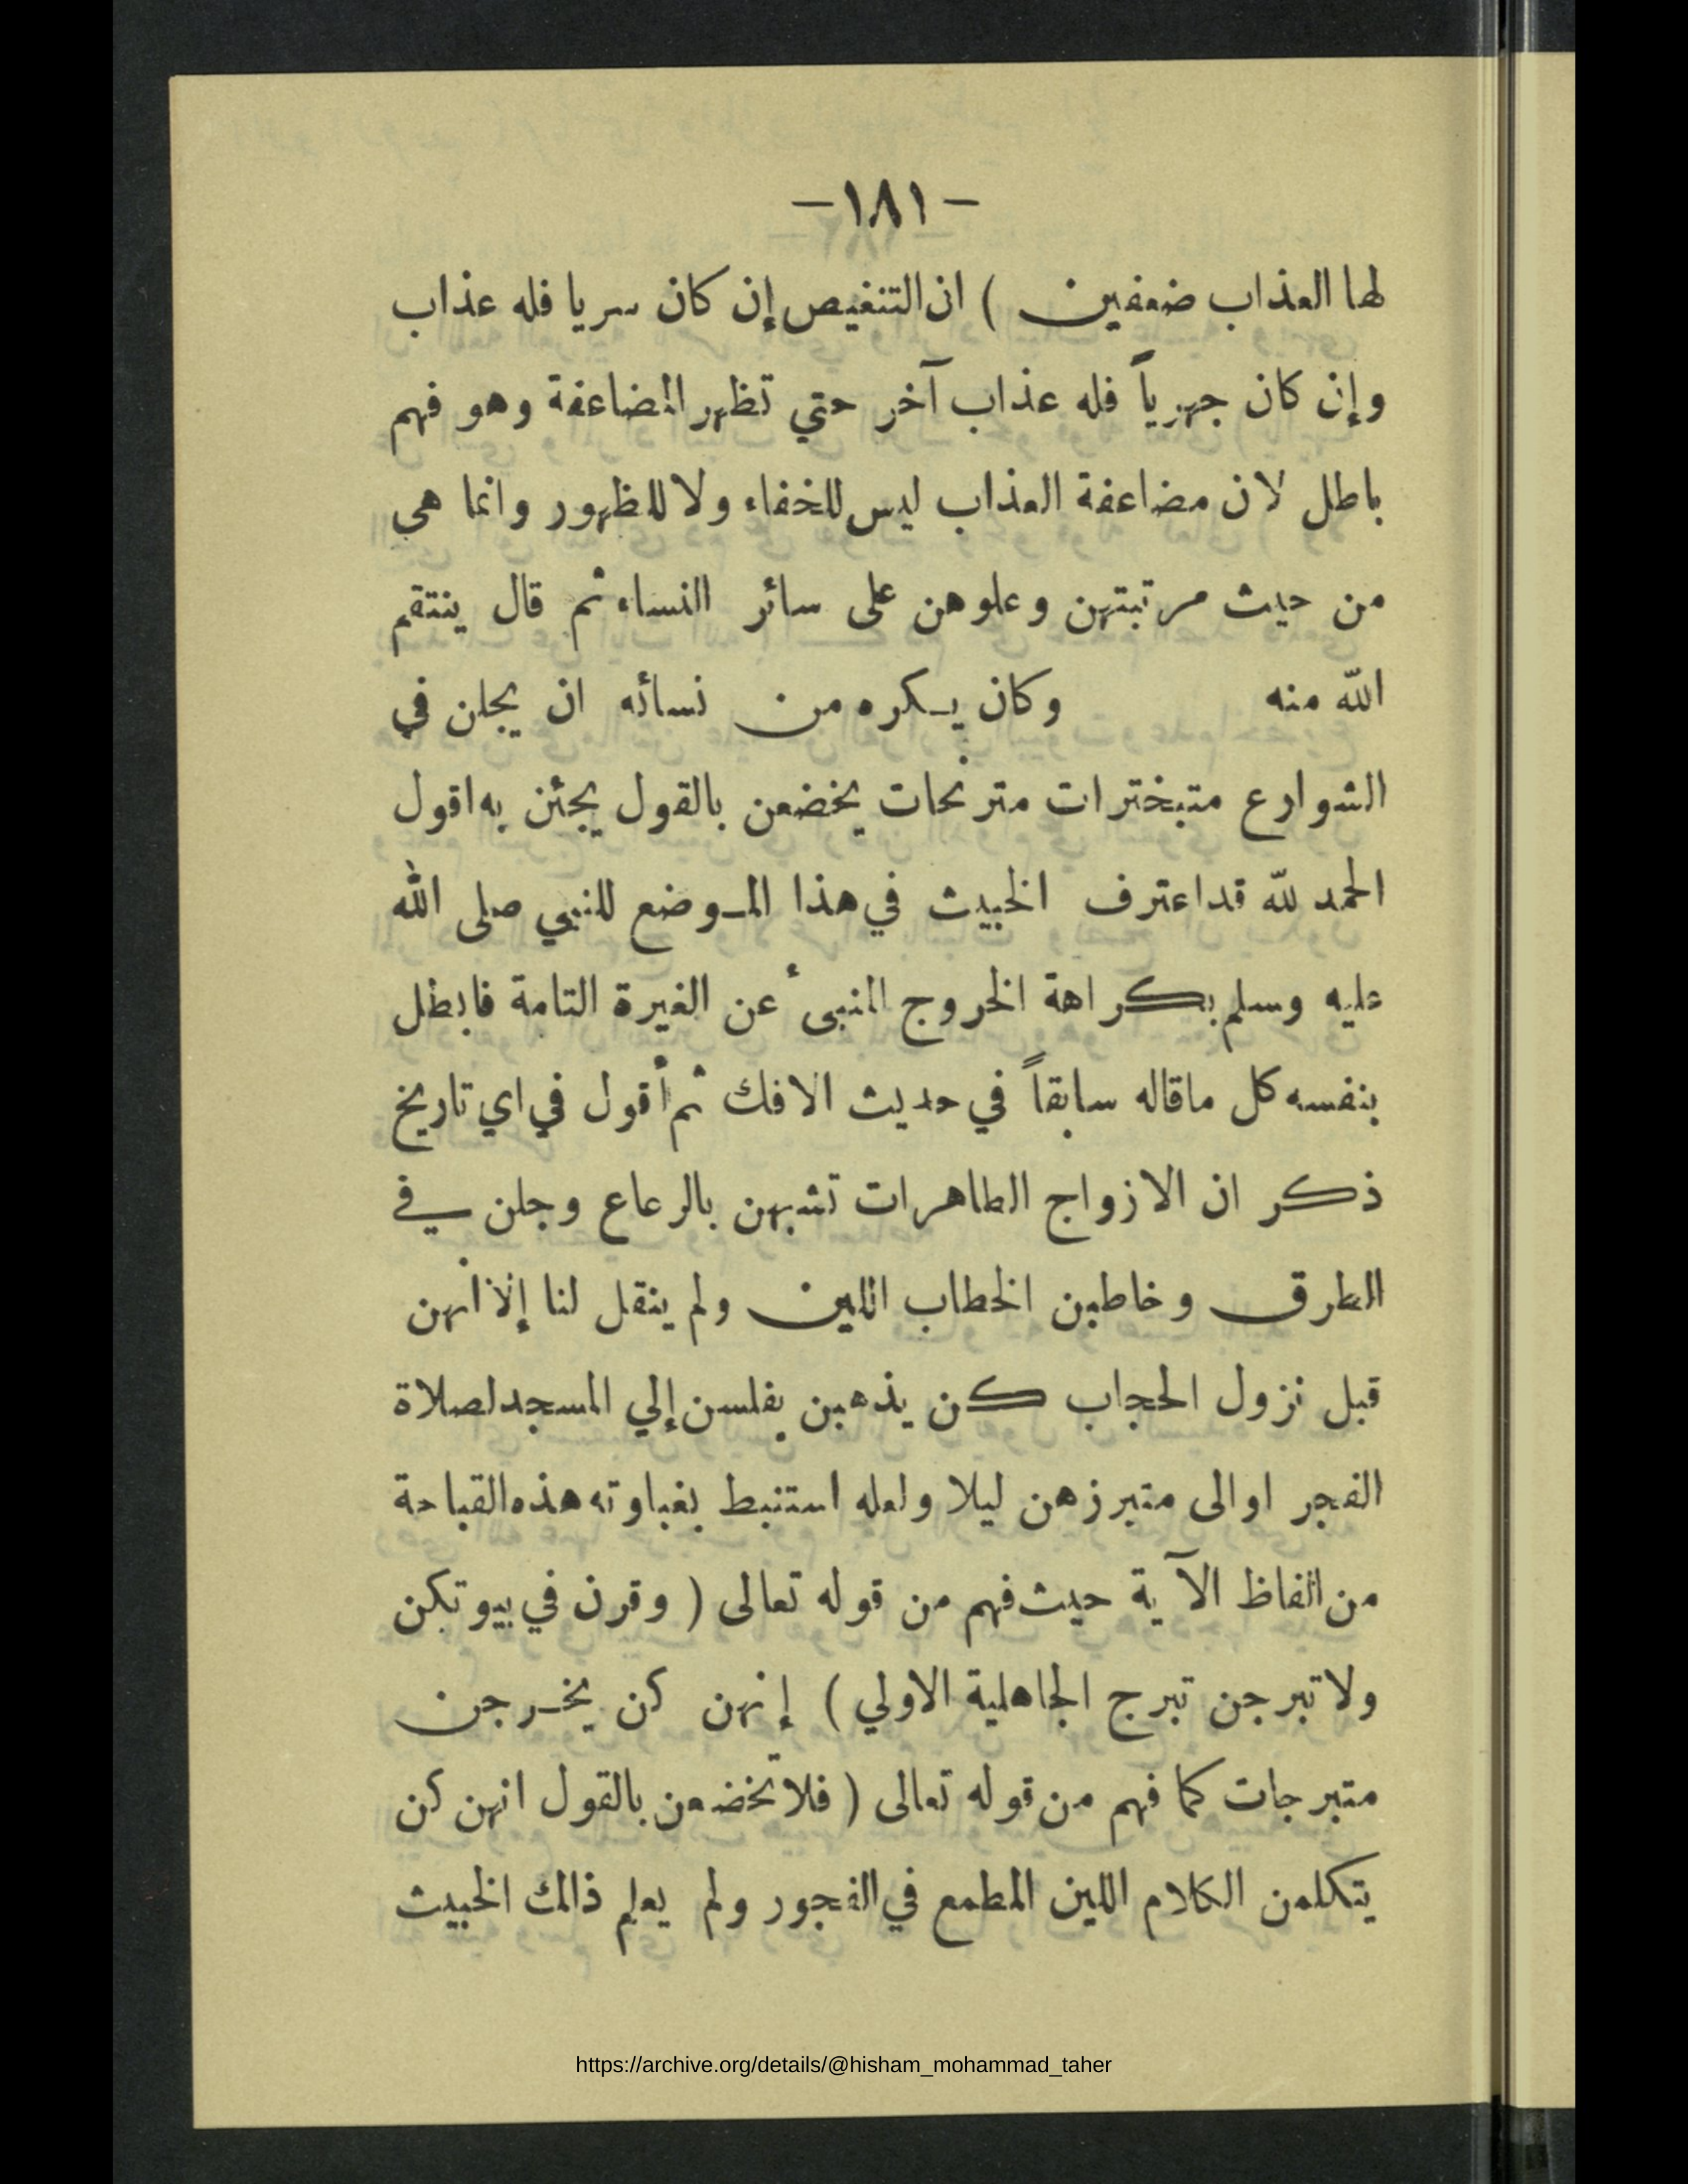 -١٨١-
لها العذاب ضعفين ) ان التنغيص إن كان سريا فله عذاب
وإن كان جهرياً فله عذاب آخر حتي تظهر المضاعفة وهو فهم
باطل لان مضاعفة العذاب ليس للخفاء ولا للظهور وانما هى
من حيث مرتبتهن وعلوهن على سائر النساء ثم قال ينتقم
الله منه وكان يكره من نسائه ان يجلن في
الشوارع متبخترات مترنحات يخضعن بالقول يجئن به اقول
الحمد لله قد اعترف الخبيث في هذا الموضع للنبي صلى الله
عليه وسلم بكراهة الخروج المنبىء عن الغيرة التامة فابطل
بنفسه كل ماقاله سابقاً في حديث الافك ثم أقول في اي تاريخ
ذكر ان الازواج الطاهرات تشبهن بالرعاع وجلن في
الطرق وخاطبن الخطاب اللين ولم ينقل لنا إلا أنهن
قبل نزول الحجاب كن يذهبن بغلس إلي المسجد لصلاة
الفجر او الى متبرزهن ليلا ولعله استنبط بغباوته هذه القباحة
من الفاظ الآية حيث فهم من قوله تعالى ( وقرن في بيوتكن
ولا تبرجن تبرج الجاهلية الاولي ) إنهن كن يخرجن
متبرجات كما فهم من قوله تعالى ( فلا تخضعن بالقول انهن كن
يتكلمن الكلام اللين المطمع في الفجور ولم يعلم ذالك الخبيث
https://archive.org/details/@hisham_mohammad_taher